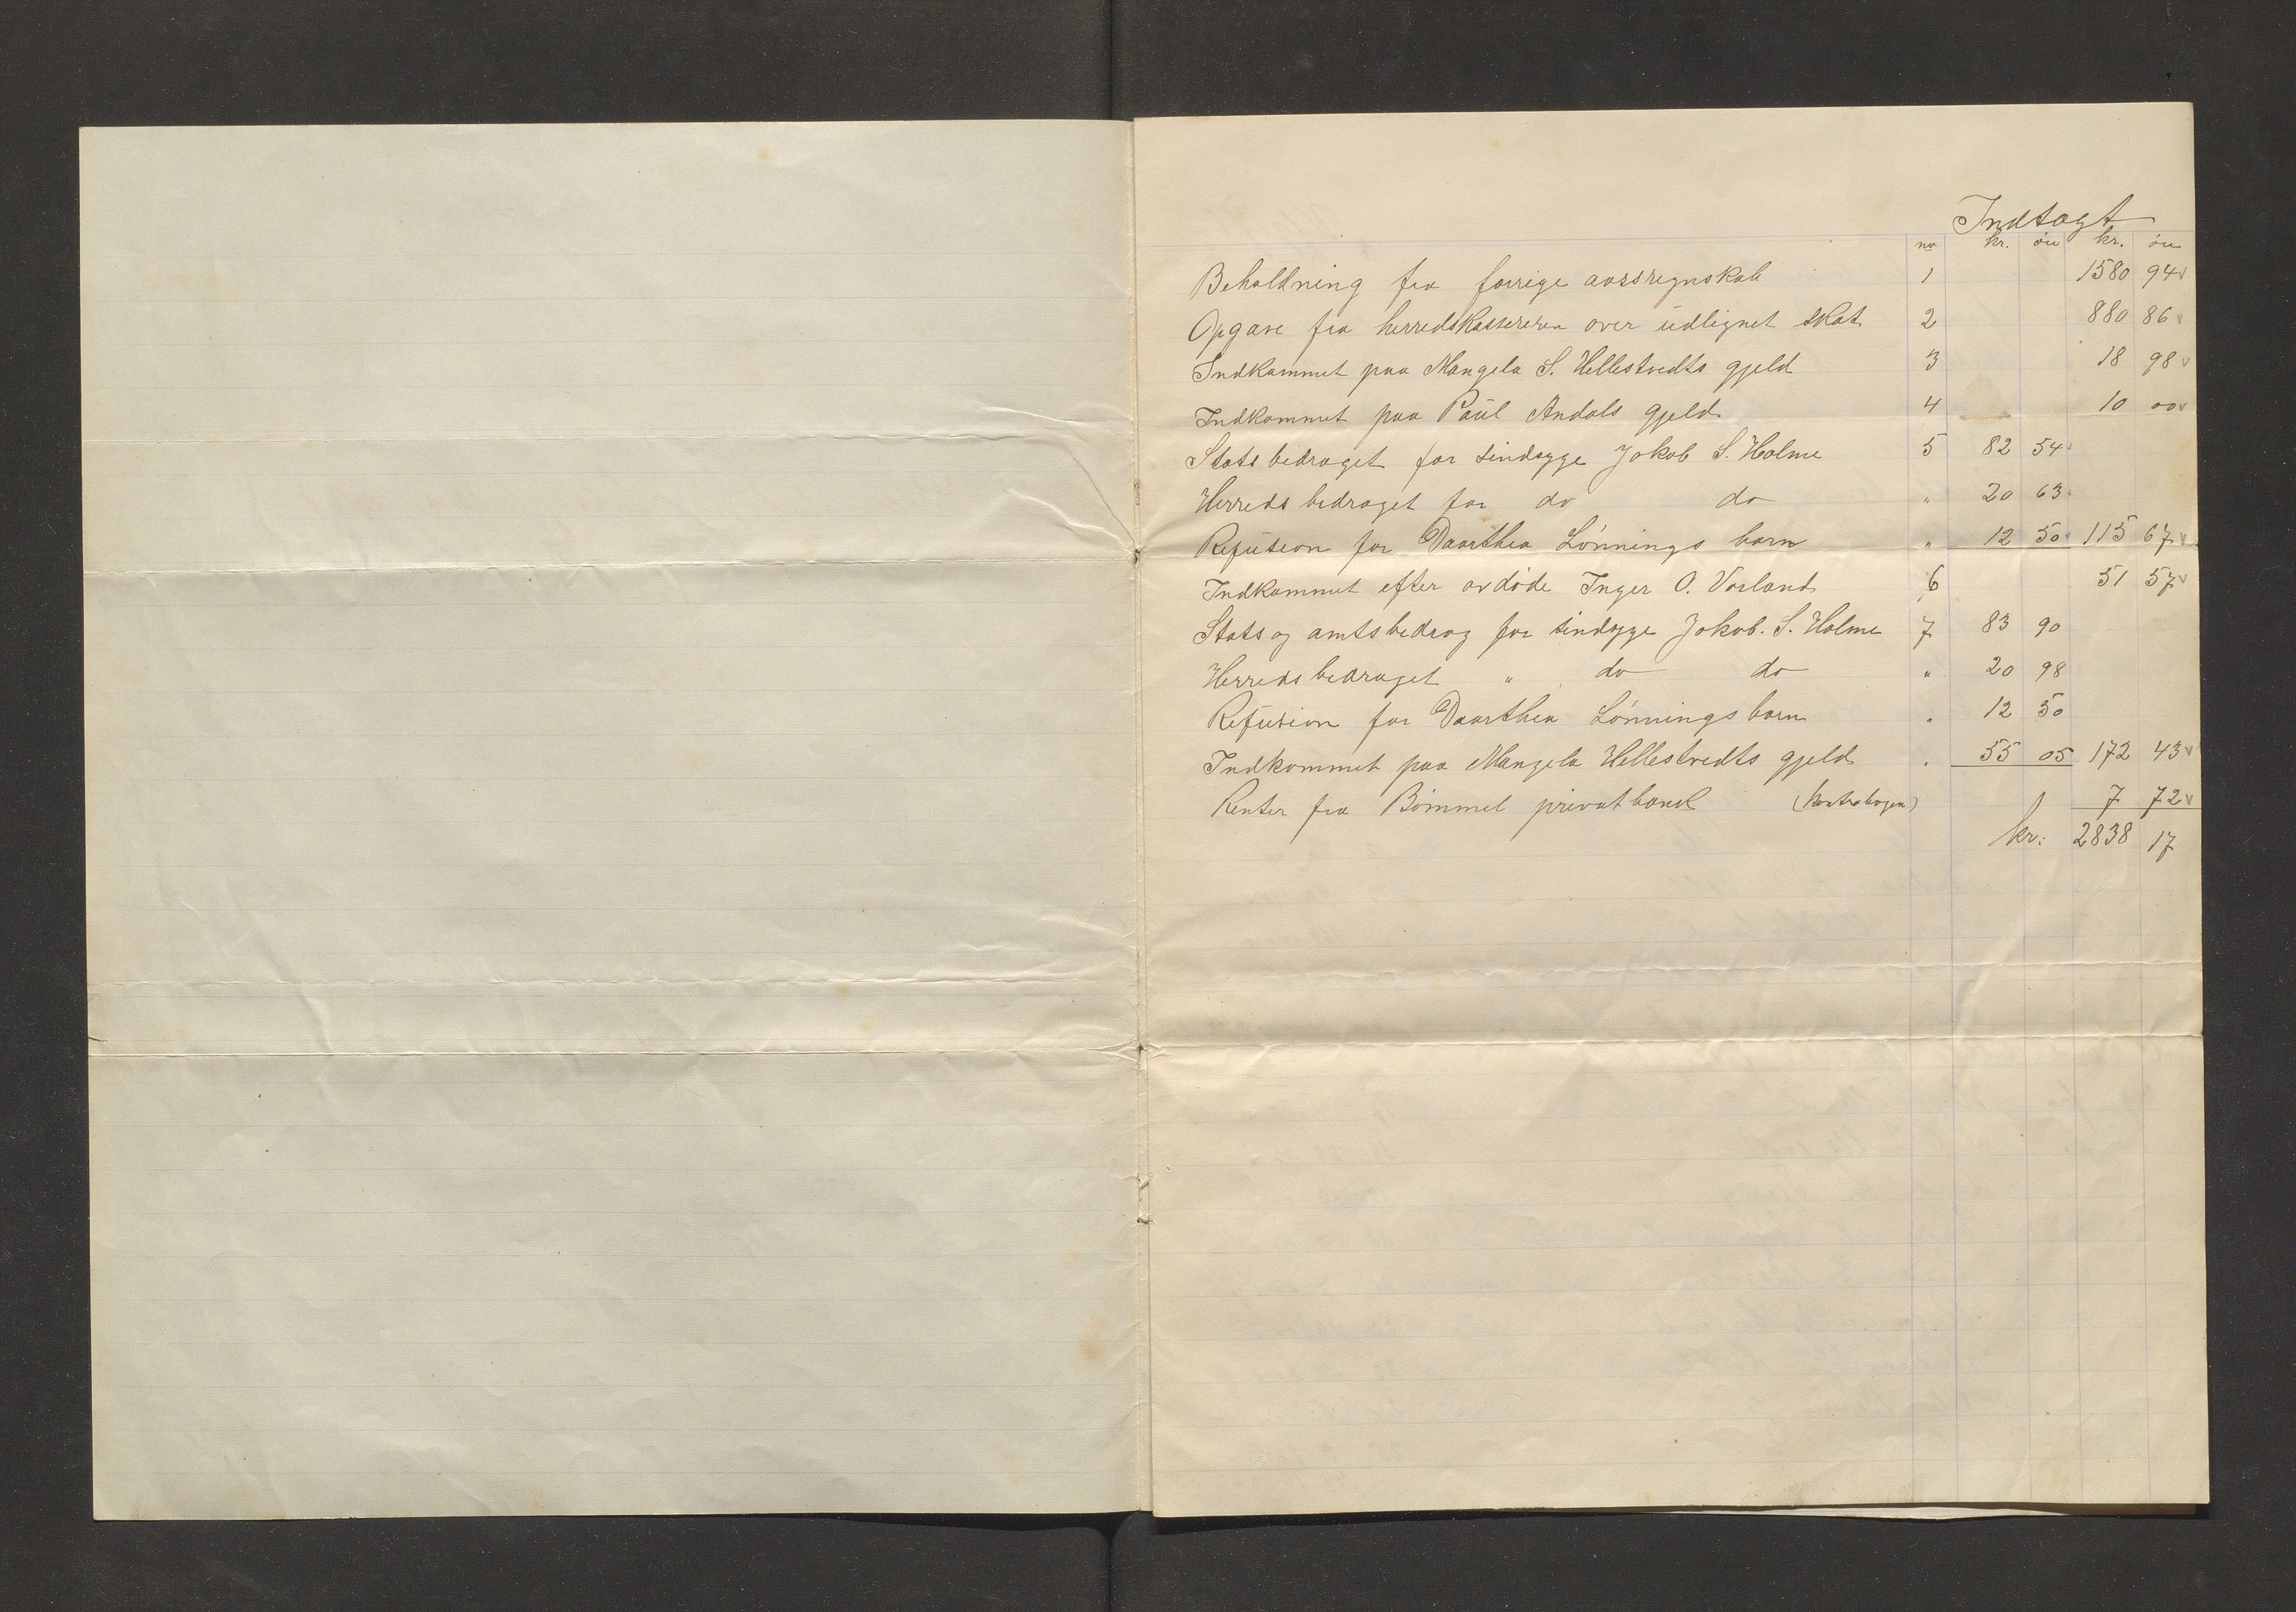 Indtægt
no kr. öre kr. öre
Beholdning fra forrige aarsregnskab 1 1580 94
Opgave fra herredskassereren over udlignet skat 2 880 86
Indkommet paa Mangela S. Hellestvedts gjeld 3 18 98
Indkommet paa Paul Andals gjeld 4 10 00
Statsbedraget for sindsyge Jokob S. Holme 5 82 54
Herredsbedraget for do do " 20 63
Refusion for Daarthea Lönnings barn " 12 50 115 67
Indkommet efter avdöde Inger O. Vorland 6 51 57
Stats og amtsbedrag for sindsyge Jokob. S. Holme 7 83 90
Herredsbedraget " do do " 20 98
Refusion for Daarthea Lönnings barn " 12 50
Indkommet paa Mangela Hellestvedts gjeld " 55 05 172 43
Renter fra Bömmel privatbank (kontrabogen) 7 72
kr: 2838 17